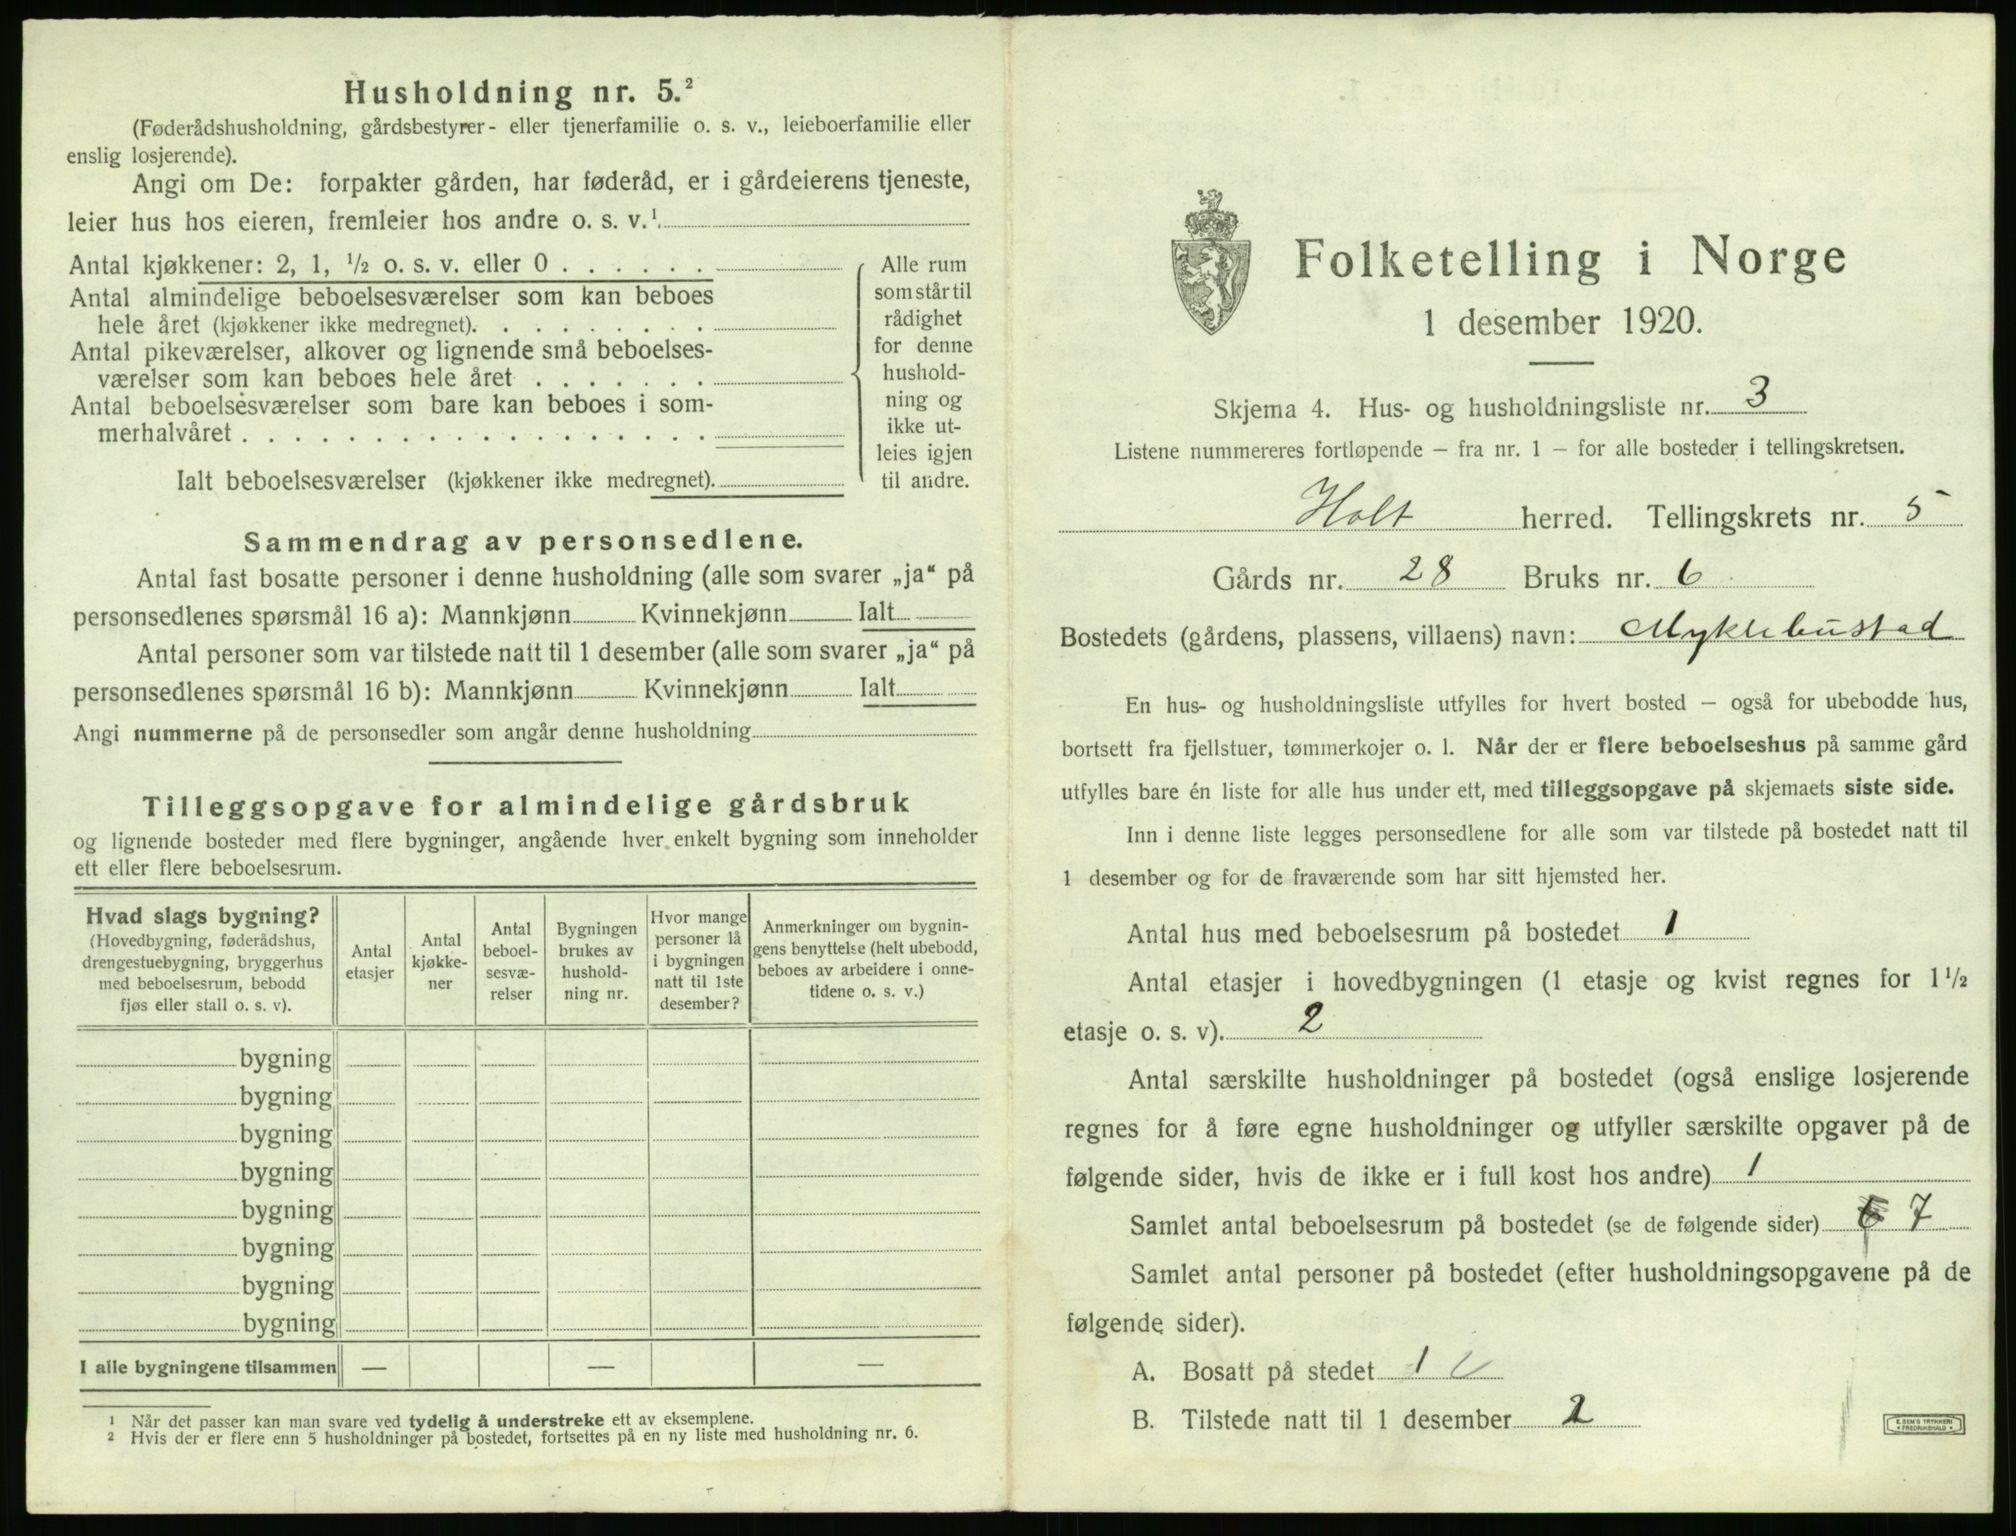 Husholdning nr. 5.²
(Føderådshusholdning, gårdsbestyrer- eller tjenerfamilie o. s. v., leieboerfamilie eller
enslig losjerende).
Angi om De: forpakter gården, har føderåd, er i gårdeierens tjeneste,
leier hus hos eieren, fremleier hos andre o. s. v.¹.
Antal kjøkkener: 2, 1, ½ o. s. v. eller 0 . . . . . .
Antal almindelige beboelsesværelser som kan beboes
hele året (kjøkkener ikke medregnet). . . . . . . . .
Antal pikeværelser, alkover og lignende små beboelses-
værelser som kan beboes hele året . . . . . . .
Antal beboelsesværelser som bare kan beboes i som-
merhalvåret . . . . . . . . . . . . . . . . . .
Alle rum
som står til
rådighet
for denne
hushold-
ning og
ikke ut-
leies igjen
til andre.
Ialt beboelsesværelser (kjøkkener ikke medregnet).
Sammendrag av personsedlene.
Antal fast bosatte personer i denne husholdning (alle som svarer „ja“ på
personsedlenes spørsmål 16 a): Mannkjønn Kvinnekjønn Ialt
Antal personer som var tilstede natt til 1 desember (alle som svarer „ja“ på
personsedlenes spørsmål 16 b): Mannkjønn Kvinnekjønn Ialt
Angi nummerne på de personsedler som angår denne husholdning
Tilleggsopgave for almindelige gårdsbruk
og lignende bosteder med flere bygninger, angående hver enkelt bygning som inneholder
ett eller flere beboelsesrum.
Hvad slags bygning?
(Hovedbygning, føderådshus,
drengestuebygning, bryggerhus
med beboelsesrum, bebodd
fjøs eller stall o. s. v).
Antal
etasjer
Antal
kjøkke-
ner
Antal
beboel-
sesvæ-
relser
Bygningen
brukes av
hushold-
ning nr.
Hvor mange
personer lå
i bygningen
natt til 1ste
desember?
Anmerkninger om bygnin-
gens benyttelse (helt ubebodd,
beboes av arbeidere i onne-
tidene o. s. v.)
bygning
bygning
bygning
bygning
bygning
bygning
bygning
bygning
I alle bygningene tilsammen — — —
¹ Når det passer kan man svare ved tydelig å understreke ett av eksemplene.
² Hvis der er flere enn 5 husholdninger på bostedet, fortsettes på en ny liste med husholdning nr. 6.
Folketelling i Norge
1 desember 1920.
Skjema 4. Hus- og husholdningsliste nr. 3
Listene nummereres fortløpende – fra nr. 1 – for alle bosteder i tellingskretsen.
Holt herred. Tellingskrets nr. 5
Gårds nr. 28 Bruks nr. 6
Bostedets (gårdens, plassens, villaens) navn: Myklebustad
En hus- og husholdningsliste utfylles for hvert bosted – også for ubebodde hus,
bortsett fra fjellstuer, tømmerkojer o. l. Når der er flere beboelseshus på samme gård
utfylles bare én liste for alle hus under ett, med tilleggsopgave på skjemaets siste side.
Inn i denne liste legges personsedlene for alle som var tilstede på bostedet natt til
1 desember og for de fraværende som har sitt hjemsted her.
Antal hus med beboelsesrum på bostedet 1
Antal etasjer i hovedbygningen (1 etasje og kvist regnes for 1½
etasje o. s. v). 2
Antal særskilte husholdninger på bostedet (også enslige losjerende
regnes for å føre egne husholdninger og utfyller særskilte opgaver på de
følgende sider, hvis de ikke er i full kost hos andre) 1
Samlet antal beboelsesrum på bostedet (se de følgende sider) 6 7
Samlet antal personer på bostedet (efter husholdningsopgavene på de
følgende sider).
A. Bosatt på stedet 1
B. Tilstede natt til 1 desember 2
E. SEM'S TRYKKERI
FREDRIKSHALD